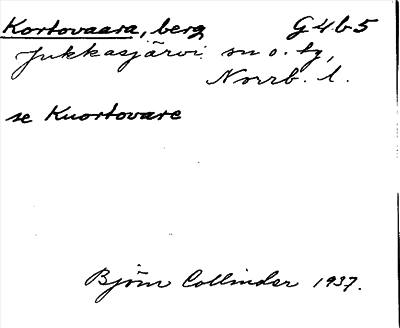 Kortovaara, berg G4b5
Jukkasjärvi sn o. tg,
Norrb. l.
se Kuortovare
Björn Collinder 1937.